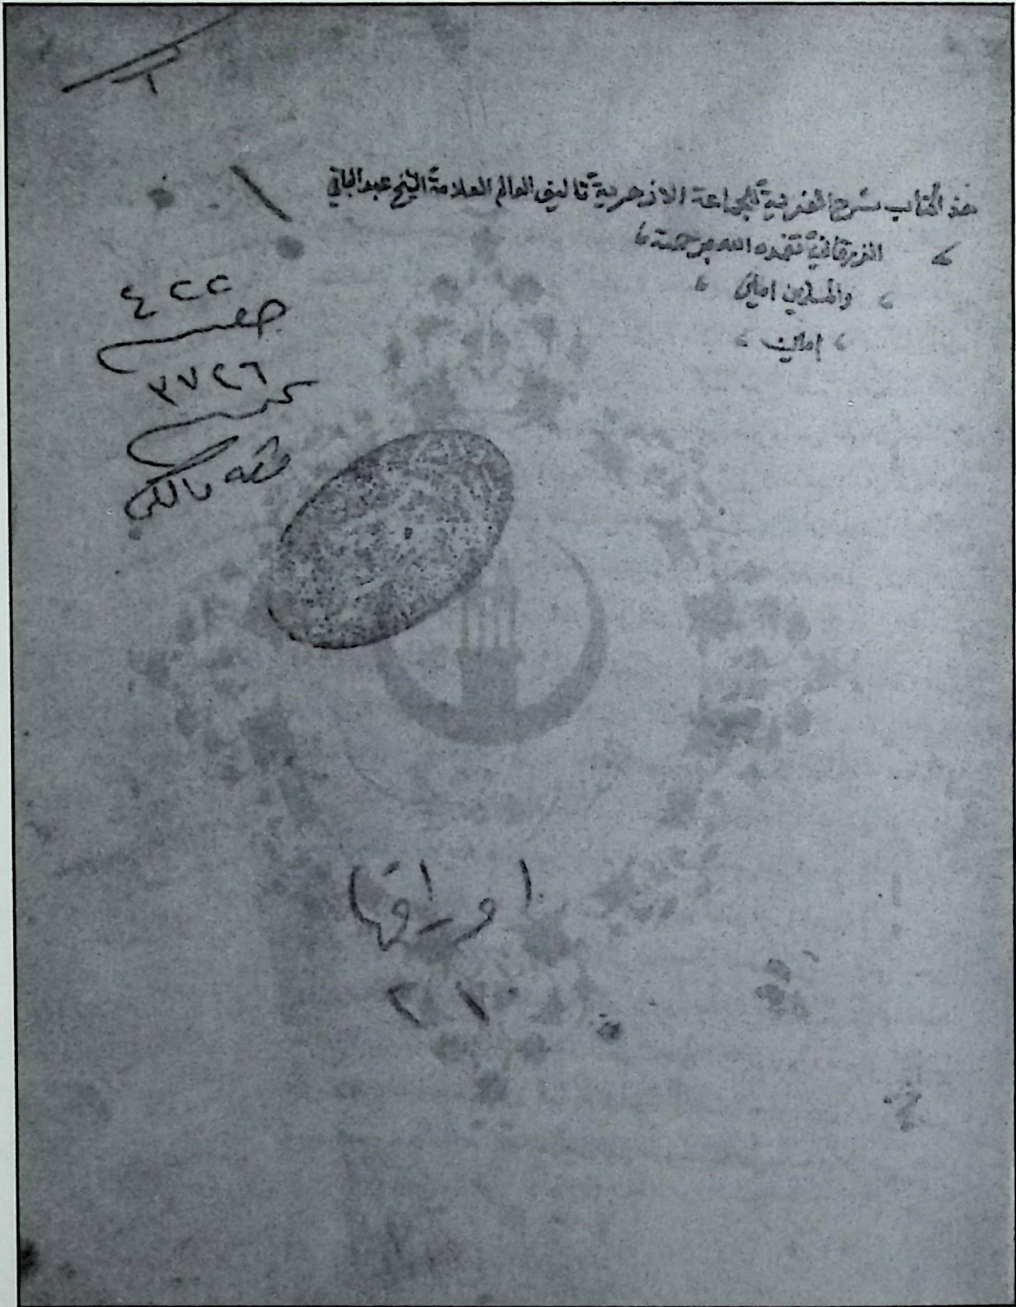 هذا كتاب شرح العزية للجماعة الازهرية تاليف العالم العلامة الشيخ عبد الباقي
الزرقاني تغمده الله برحمته
والمسلمين امين
امين
٤٢٢
٣٧٢٦
فقه مالكي
اوراقها
٢١٠